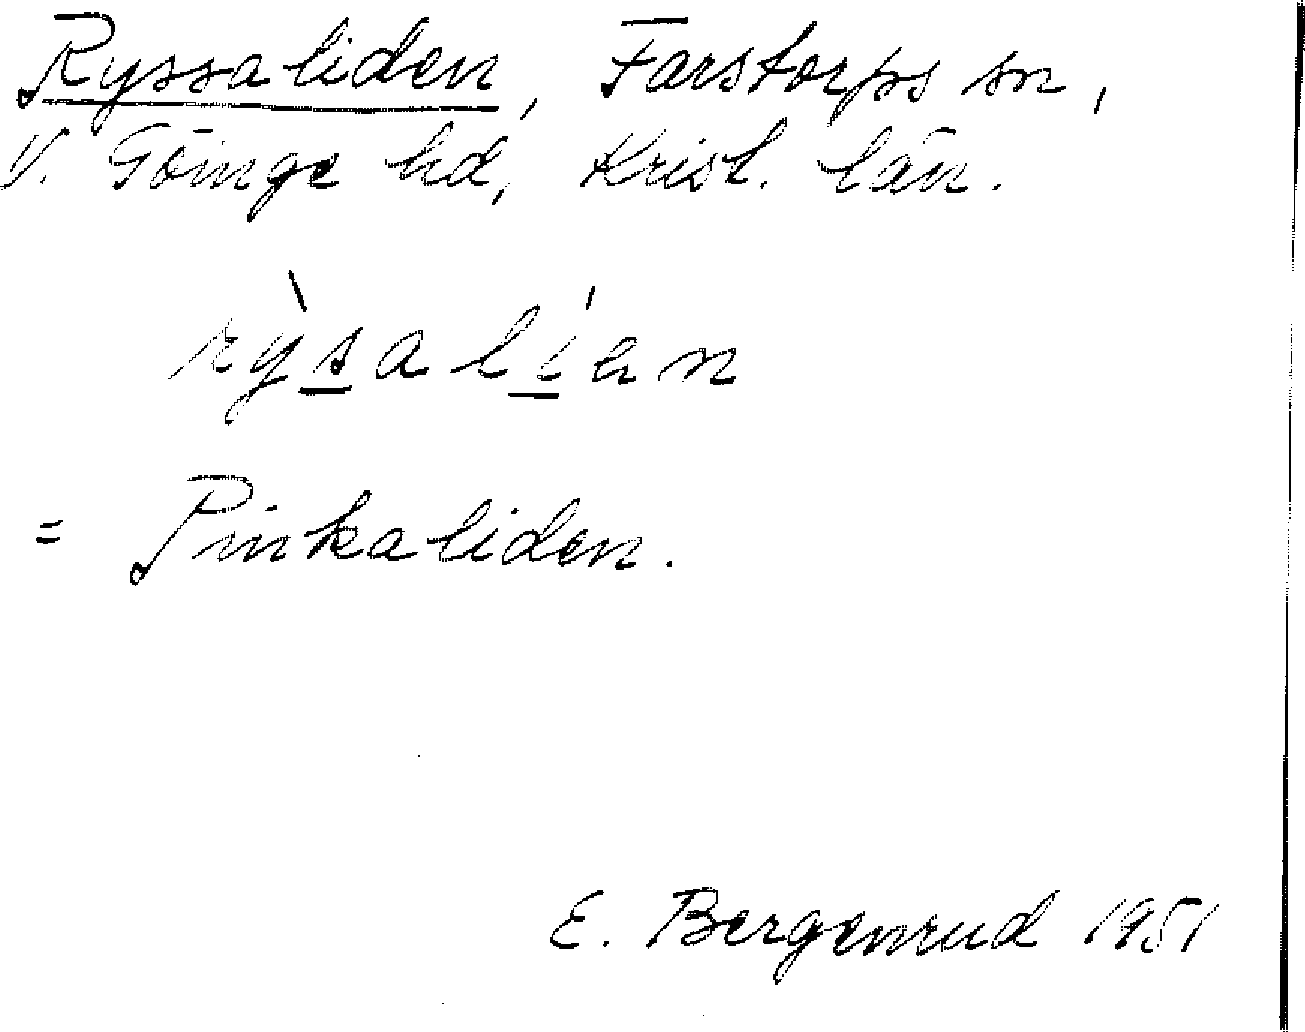 Ryssaliden, Farstorps sn,
V. Göinge hd, Krist. län.
rỳsalían
= Pinkaliden.
E. Bergenrud 1951